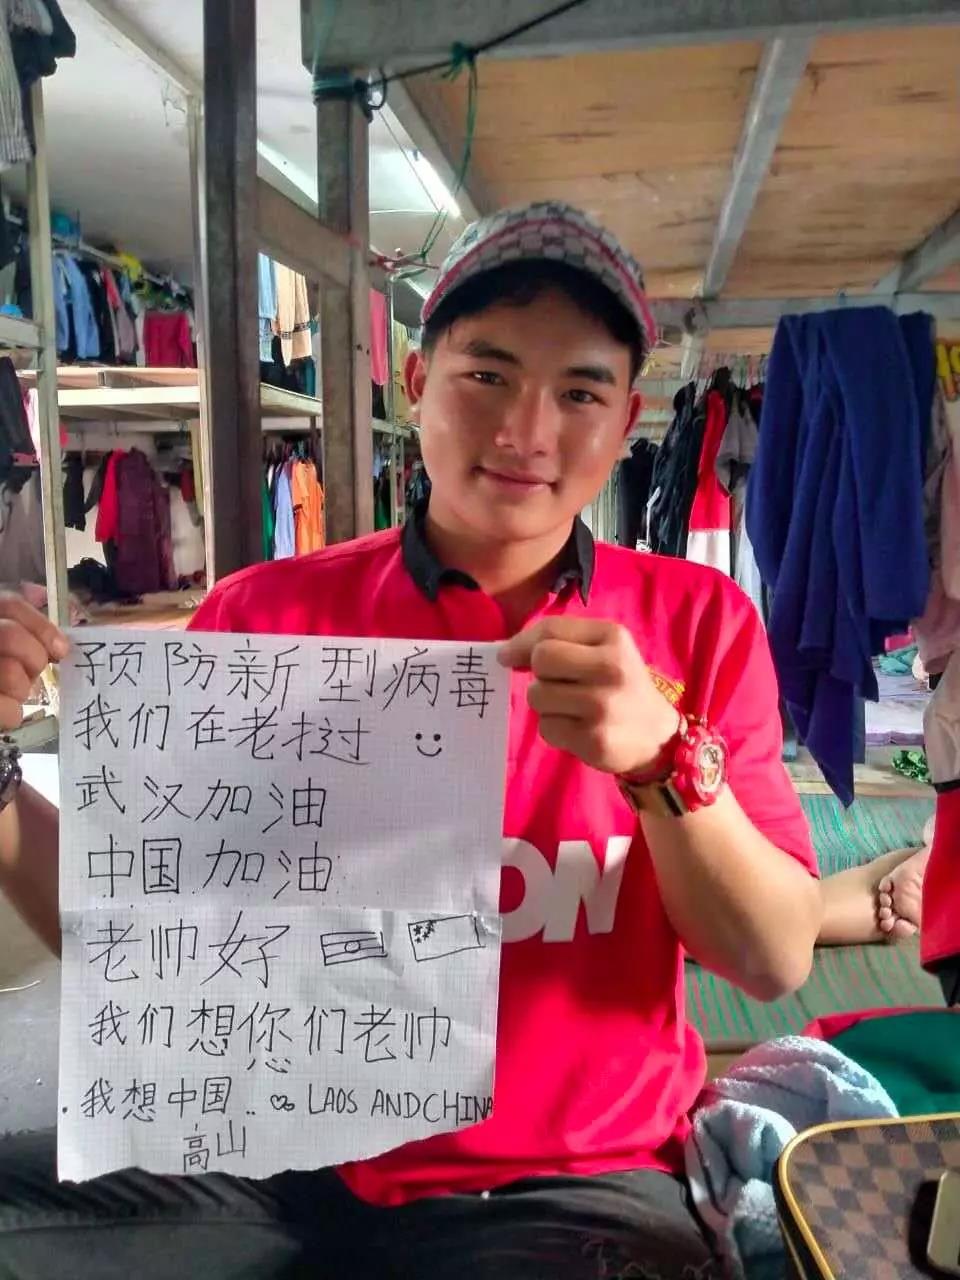 预防新型病毒
我们在老挝
武汉加油
中国加油
老帅好
我们想你们老帅
我想中国.. LAOS AND CHINA
高山
ON